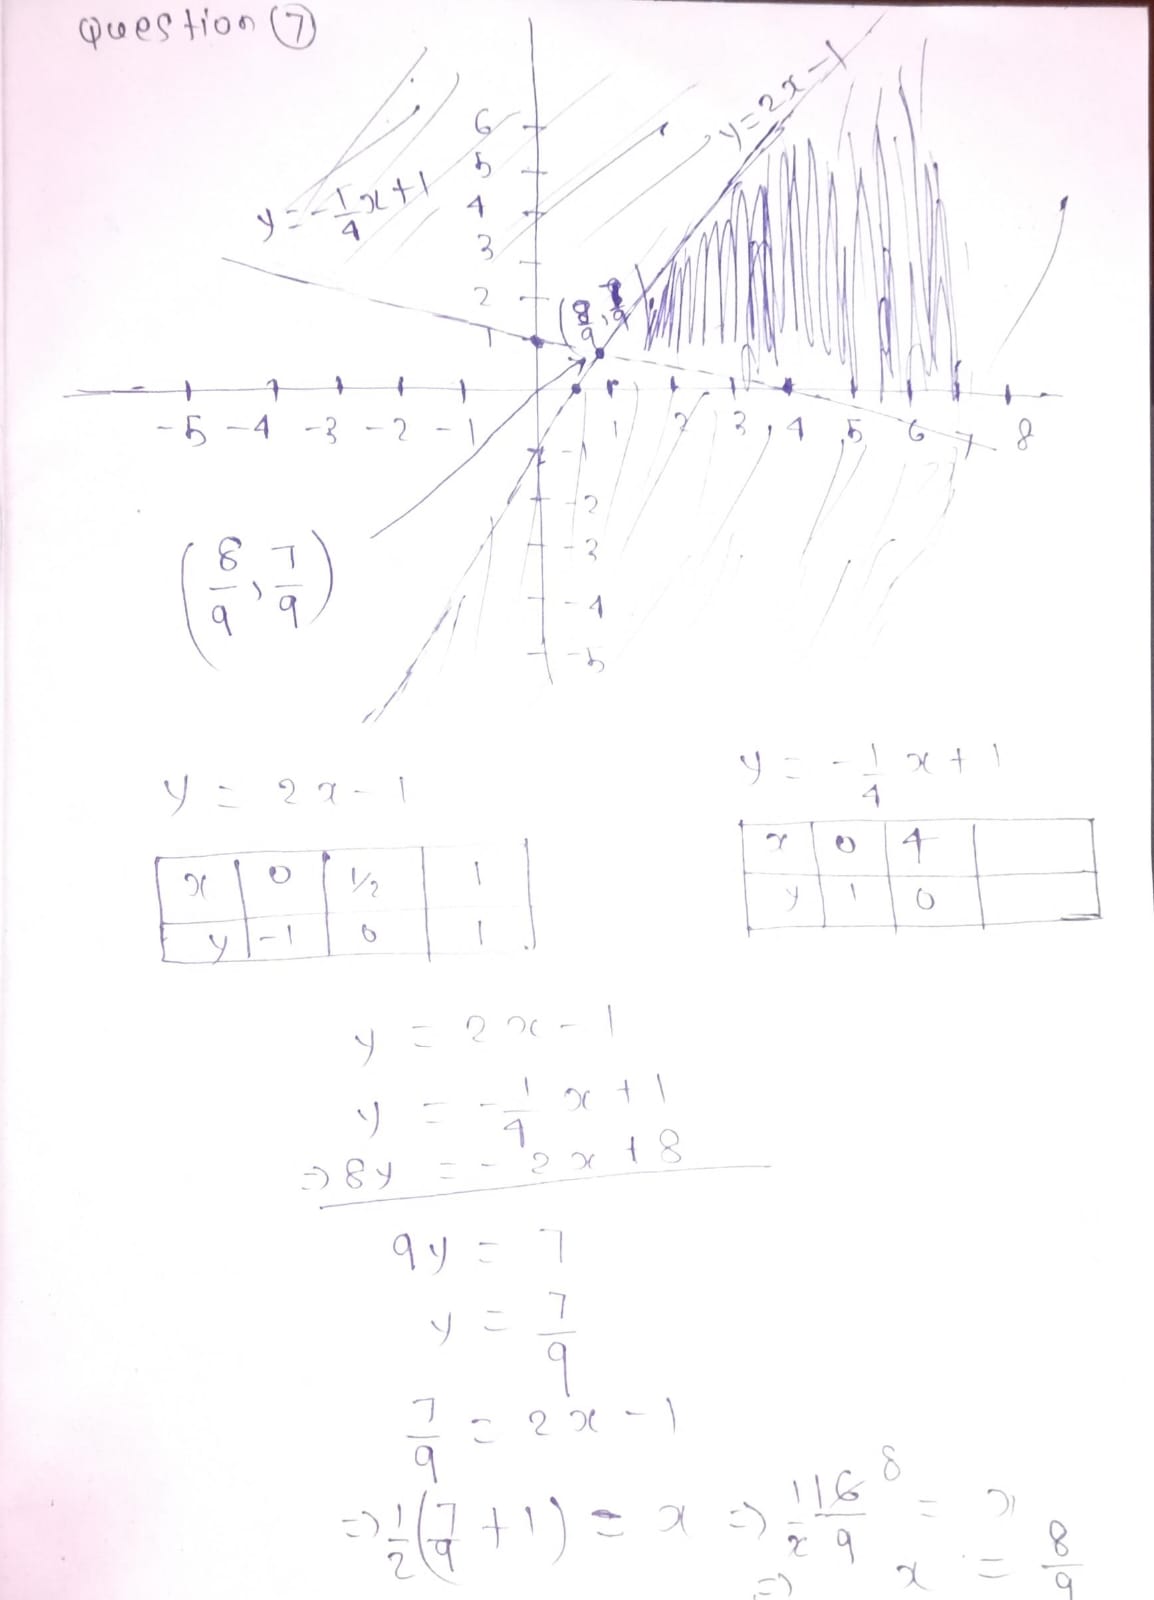 Question (7)
y = 2x - 1
6
5
4
3
2
1
y = -1/4 x + 1
(8/9, 7/9)
-5 -4 -3 -2 -1 1 2 3, 4 ,5 6 7 8
-1
-2
-3
-4
-5
(8/9, 7/9)
y = 2x - 1
y = -1/4 x + 1
x | 0 | 1/2 | 1
y | -1 | 0 | 1
x | 0 | 4
y | 1 | 0
y = 2x - 1
y = -1/4 x + 1
⇒ 8y = -2x + 8
9y = 7
y = 7/9
7/9 = 2x - 1
⇒ 1/2 (7/9 + 1) = x ⇒ 1/2 16/9 8 = x
⇒ x = 8/9